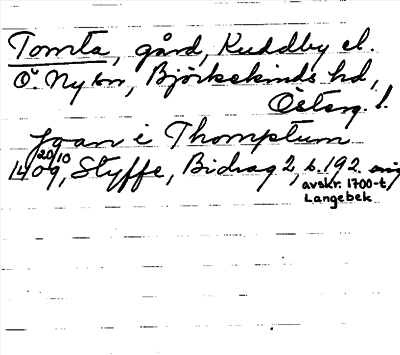 Tomta, gård, Kuddby el.
Ö. Ny sn, Björkekinds hd,
Österg. l.
Joan i Thomptum
20/10
1409, Styffe, Bidrag 2, s. 192.
avskr. 1700-t,
Langebek